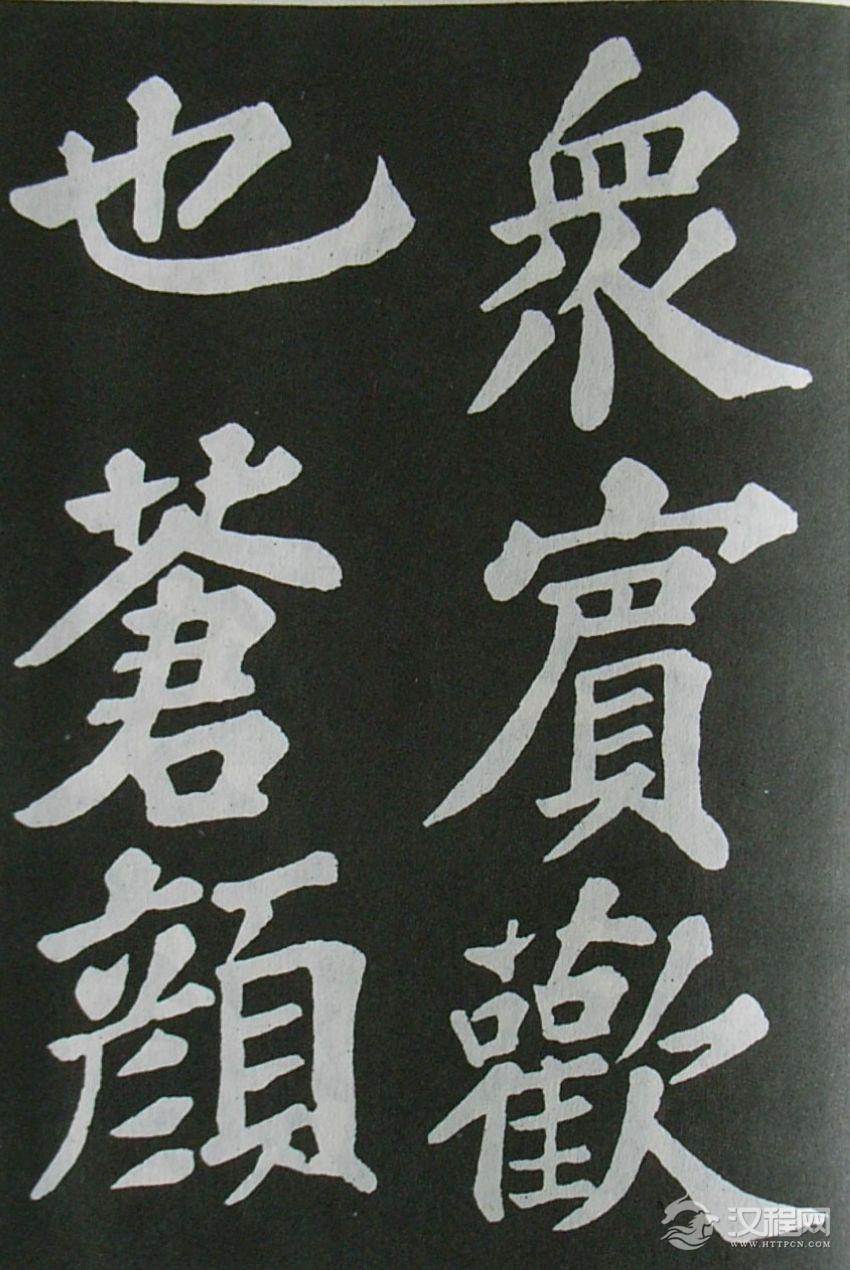 眾賓歡
也蒼顏
汉程网
WWW.HTTPCN.COM